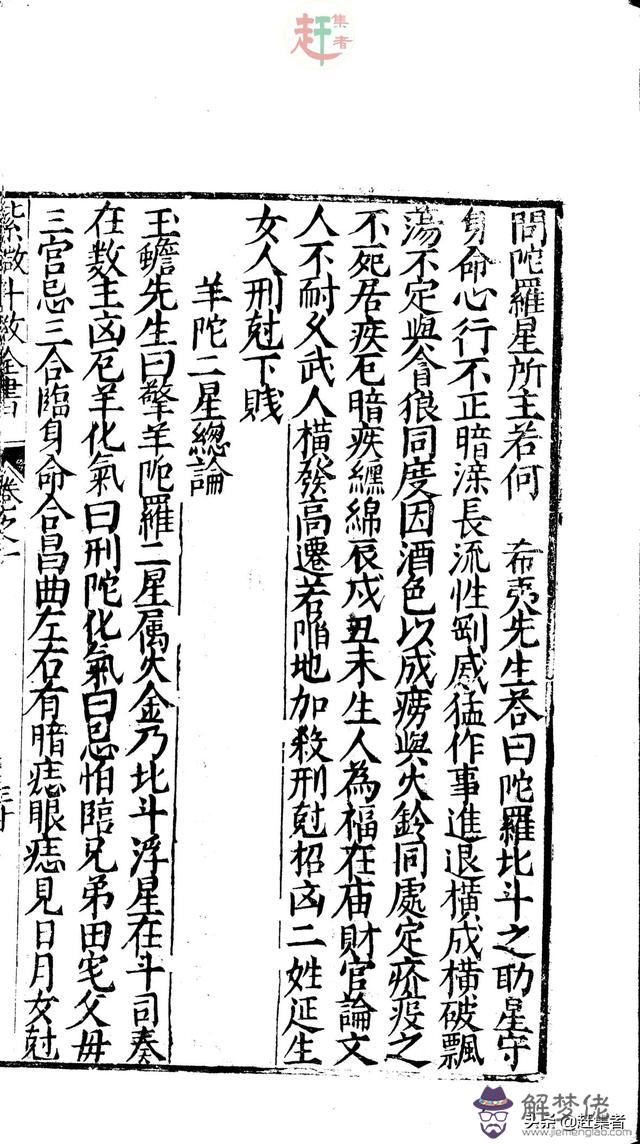 赶集者
問陀羅星所主若何 希夷先生荅曰陀羅北斗之助星守
身命心行不正暗淚長流性剛威猛作事進退橫成橫破飄
蕩不定與貪狼同度因酒色以成癆與火鈴同處定疥疫之
不死居疾厄暗疾纏綿辰戌丑未生人為福在庙財官論文
人不耐久武人橫發高遷若陷地加殺刑尅招凶二姓延生
女人刑尅下賤
羊陀二星總論
玉蟾先生曰擎羊陀羅二星属火金乃北斗浮星在斗司奏
在数主凶厄羊化氣曰刑陀化氣曰忌怕臨兄弟田宅父母
三宮忌三合臨身命合昌曲左右有暗痣眼痣見日月女尅
紫微斗数全書 卷之一 三十
解梦佬
www.jiemenglab.com
头条@赶集者